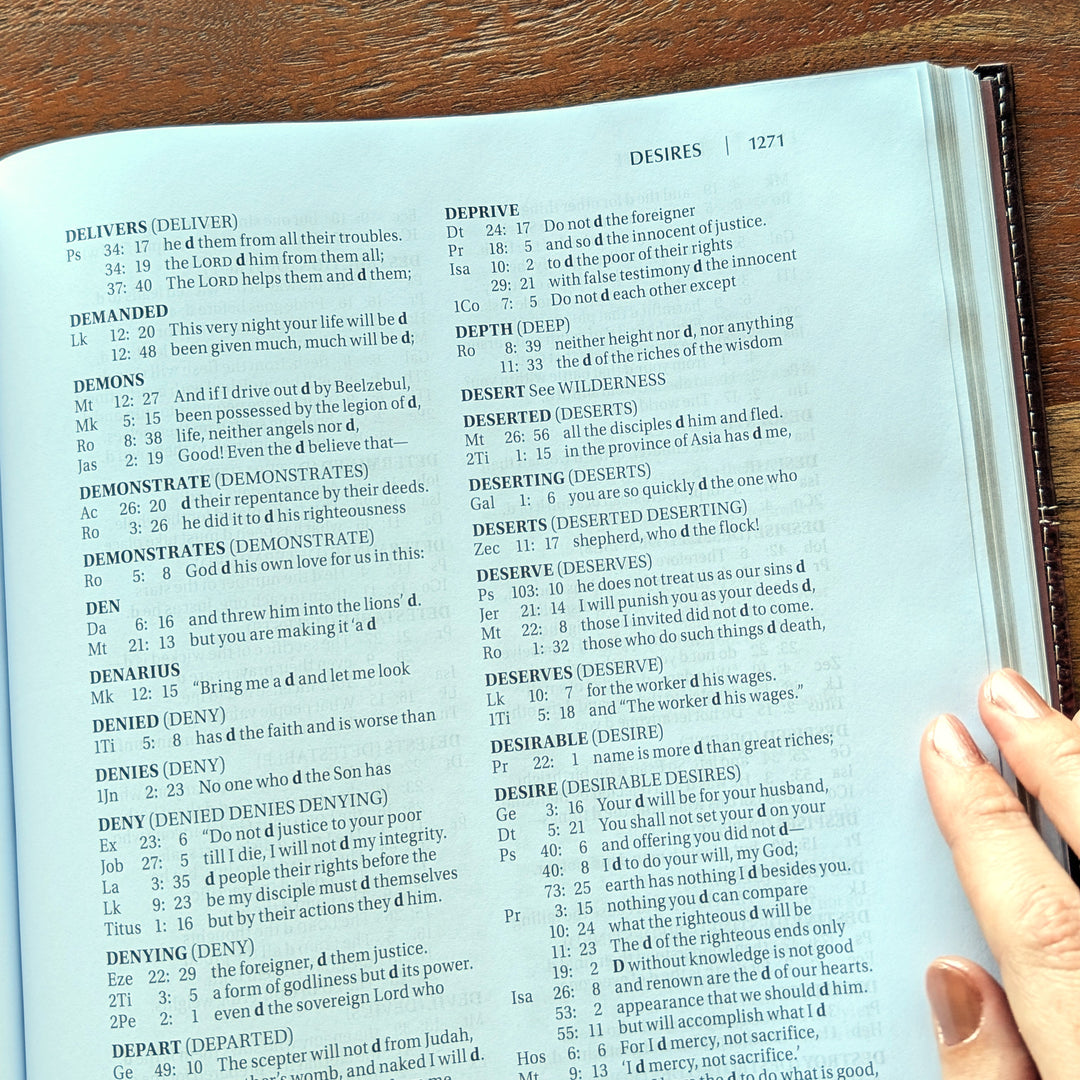 DESIRES | 1271
DELIVERS (DELIVER)
Ps 34: 17 he d them from all their troubles.
34: 19 the LORD d him from them all;
37: 40 The LORD helps them and d them;
DEMANDED
Lk 12: 20 This very night your life will be d
12: 48 been given much, much will be d;
DEMONS
Mt 12: 27 And if I drive out d by Beelzebul,
Mk 5: 15 been possessed by the legion of d,
Ro 8: 38 life, neither angels nor d,
Jas 2: 19 Good! Even the d believe that—
DEMONSTRATE (DEMONSTRATES)
Ac 26: 20 d their repentance by their deeds.
Ro 3: 26 he did it to d his righteousness
DEMONSTRATES (DEMONSTRATE)
Ro 5: 8 God d his own love for us in this:
DEN
Da 6: 16 and threw him into the lions’ d.
Mt 21: 13 but you are making it ‘a d
DENARIUS
Mk 12: 15 “Bring me a d and let me look
DENIED (DENY)
1Ti 5: 8 has d the faith and is worse than
DENIES (DENY)
1Jn 2: 23 No one who d the Son has
DENY (DENIED DENIES DENYING)
Ex 23: 6 “Do not d justice to your poor
Job 27: 5 till I die, I will not d my integrity.
La 3: 35 d people their rights before the
Lk 9: 23 be my disciple must d themselves
Titus 1: 16 but by their actions they d him.
DENYING (DENY)
Eze 22: 29 the foreigner, d them justice.
2Ti 3: 5 a form of godliness but d its power.
2Pe 2: 1 even d the sovereign Lord who
DEPART (DEPARTED)
Ge 49: 10 The scepter will not d from Judah,
womb, and naked I will d.
DEPRIVE
Dt 24: 17 Do not d the foreigner
Pr 18: 5 and so d the innocent of justice.
Isa 10: 2 to d the poor of their rights
29: 21 with false testimony d the innocent
1Co 7: 5 Do not d each other except
DEPTH (DEEP)
Ro 8: 39 neither height nor d, nor anything
11: 33 the d of the riches of the wisdom
DESERT See WILDERNESS
DESERTED (DESERTS)
Mt 26: 56 all the disciples d him and fled.
2Ti 1: 15 in the province of Asia has d me,
DESERTING (DESERTS)
Gal 1: 6 you are so quickly d the one who
DESERTS (DESERTED DESERTING)
Zec 11: 17 shepherd, who d the flock!
DESERVE (DESERVES)
Ps 103: 10 he does not treat us as our sins d
Jer 21: 14 I will punish you as your deeds d,
Mt 22: 8 those I invited did not d to come.
Ro 1: 32 those who do such things d death,
DESERVES (DESERVE)
Lk 10: 7 for the worker d his wages.
1Ti 5: 18 and “The worker d his wages.”
DESIRABLE (DESIRE)
Pr 22: 1 name is more d than great riches;
DESIRE (DESIRABLE DESIRES)
Ge 3: 16 Your d will be for your husband,
Dt 5: 21 You shall not set your d on your
Ps 40: 6 and offering you did not d—
40: 8 I d to do your will, my God;
73: 25 earth has nothing I d besides you.
Pr 3: 15 nothing you d can compare
10: 24 what the righteous d will be
11: 23 The d of the righteous ends only
19: 2 D without knowledge is not good
Isa 26: 8 and renown are the d of our hearts.
53: 2 appearance that we should d him.
55: 11 but will accomplish what I d
Hos 6: 6 For I d mercy, not sacrifice,
Mt 9: 13 ‘I d mercy, not sacrifice.’
the d to do what is good,